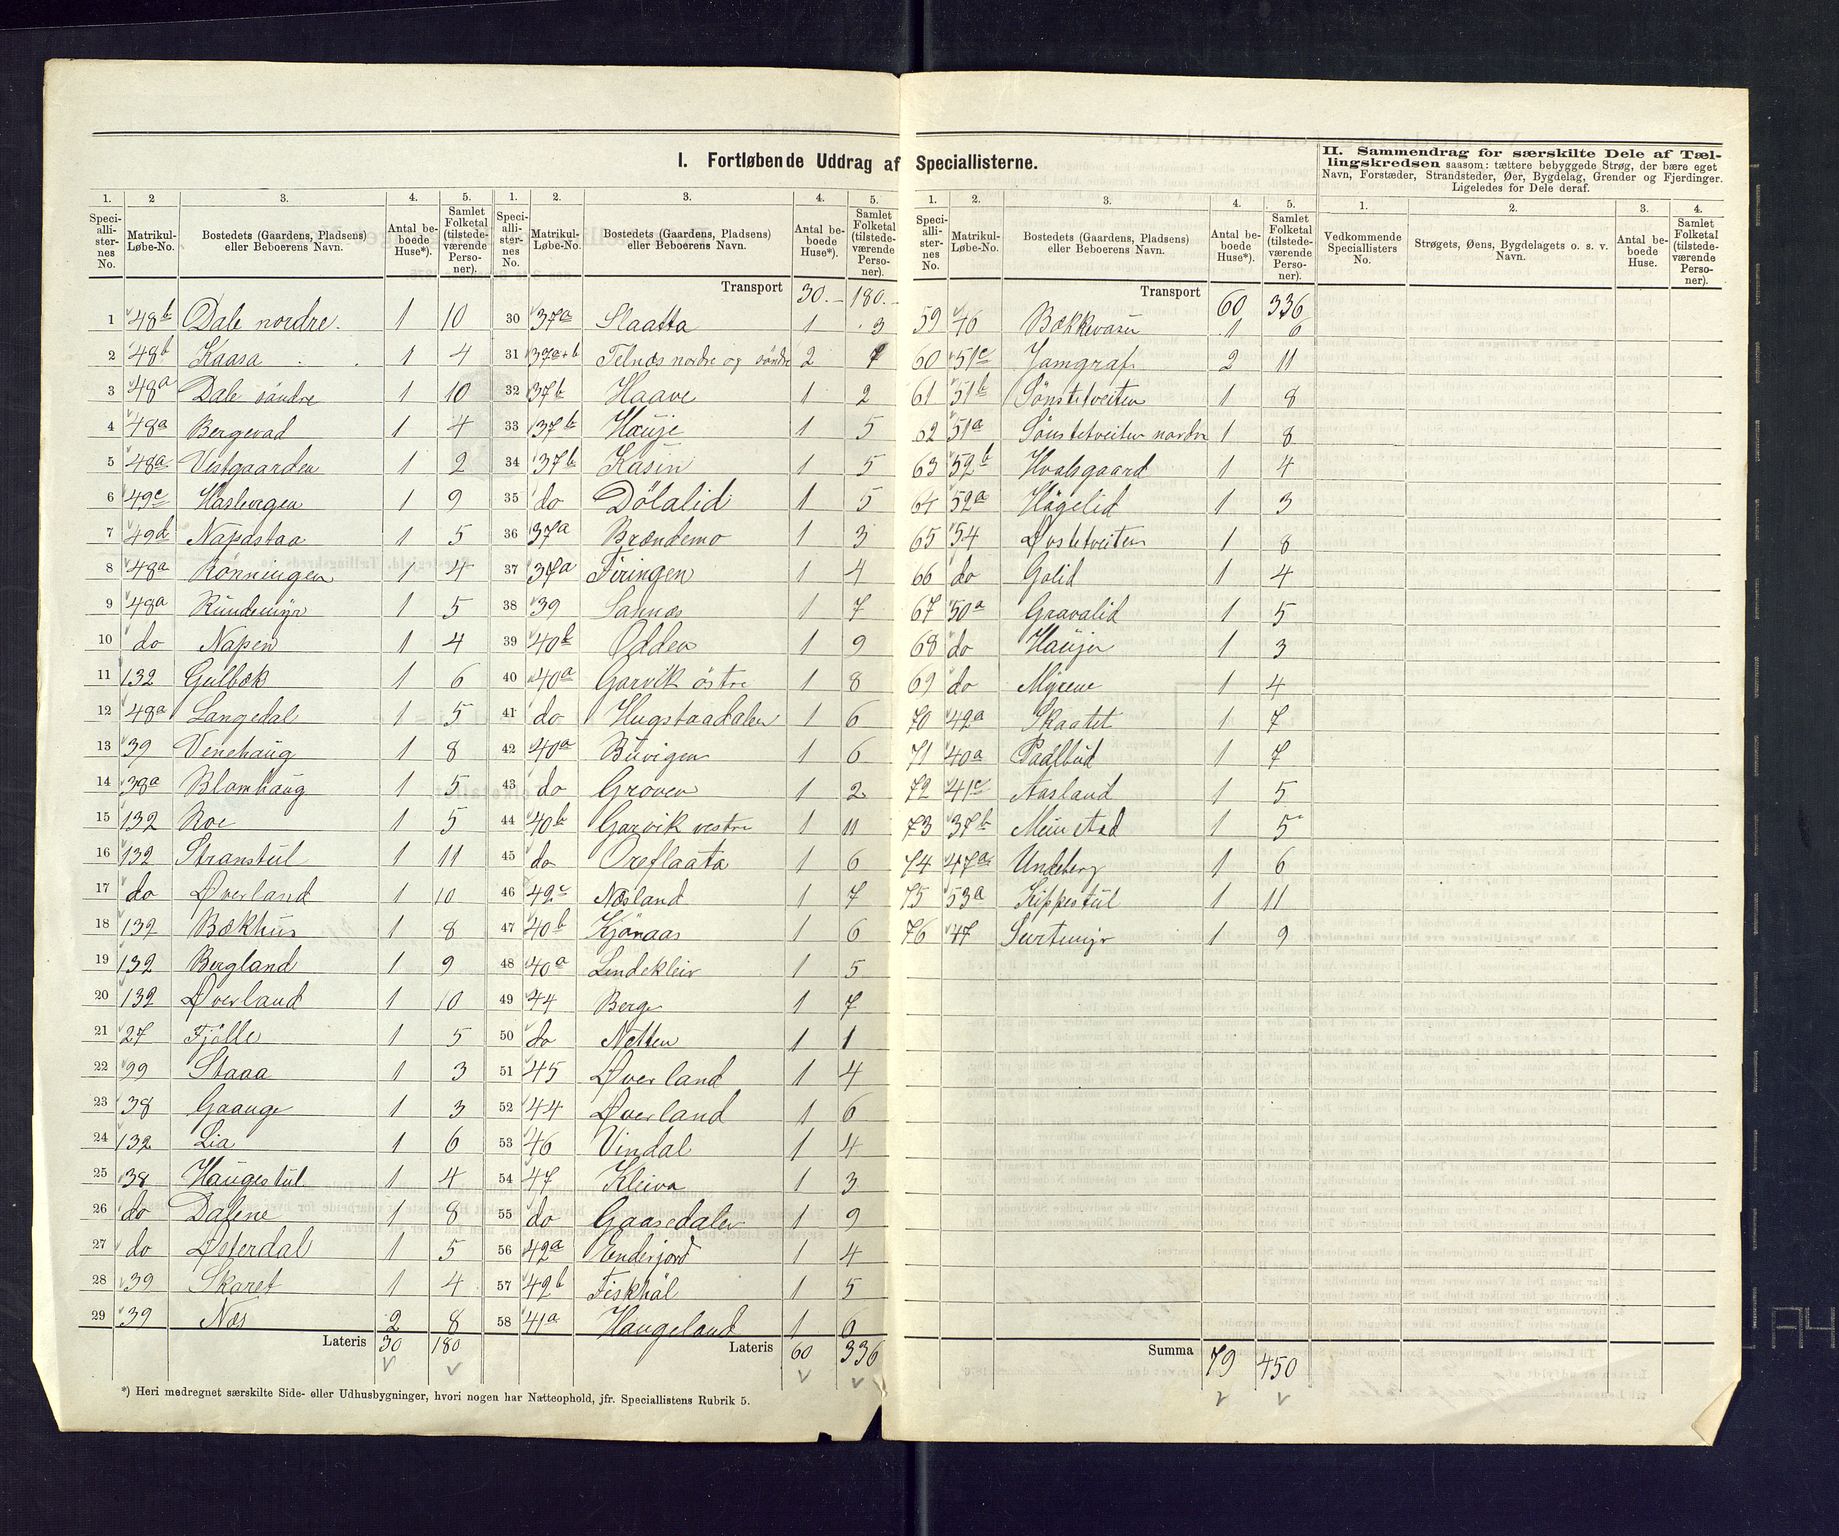 I. Fortløbende Uddrag af Speciallisterne.
II. Sammendrag for særskilte Dele af Tæl-
lingskredsen saasom: tættere bebyggede Strøg, der bære eget
Navn, Forstæder, Strandsteder, Øer, Bygdelag, Grender og Fjerdinger.
Ligeledes for Dele deraf.
1. 2 3. 4. 5.
Speciallisternes No. Matrikul-Løbe-No. Bostedets (Gaardens, Pladsens) eller Beboerens Navn. Antal beboede Huse*). Samlet Folketal (tilstedeværende Personer).
1 48b Dale nordre. 1 10
2 48b Kaasa 1 4
3 48a Dale søndre 1 10
4 48a Bergevad 1 4
5 48a Vestgaarden 1 2
6 49c Hasbergen 1 9
7 49d Napdstaa 1 5
8 48a Rönningen 1 4
9 48a Rundemyr 1 5
10 do Napen 1 4
11 132 Gulbæk 1 6
12 48a Langedal 1 5
13 39 Venehaug 1 8
14 38a Blomhaug 1 5
15 132 Roe 1 5
16 132 Stranstul 1 11
17 do Øverland 1 10
18 132 Bækhus 1 8
19 132 Bergland 1 9
20 132 Øverland 1 10
21 27 Fjölle 1 5
22 99 Staaa 1 3
23 38 Gaauge 1 3
24 132 Lia 1 6
25 38 Haugestul 1 4
26 do Dalene 1 8
27 do Østerdal 1 5
28 39 Skaret 1 4
29 39 Næs 2 8
Lateris 30 180
1. 2. 3. 4. 5.
Speciallisternes No. Matrikul-Løbe-No. Bostedets (Gaardens, Pladsens) eller Beboerens Navn. Antal beboede Huse*). Samlet Folketal (tilstedeværende Personer).
Transport 30.— 180.—
30 37a Slaatta 1 3
31 37a+b Telnæs nordre og søndre 2 7
32 37b Haave 1 2
33 37b Hauje 1 5
34 37b Kasin 1 5
35 do Dölalid 1 5
36 37a Brændemo 1 3
37 37a Firingen 1 4
38 39 Sannæs 1 7
39 40b Odden 1 9
40 40a Garvik östre 1 8
41 do Hugstaadalen 1 6
42 40a Buvigen 1 6
43 do Groven 1 2
44 40b Garvik vestre 1 11
45 do Oreflaata 1 6
46 42c Næsland 1 7
47 40b Kjönaas 1 6
48 40a Lindekleiv 1 5
49 44 Berge 1 7
50 do Netten 1 1
51 45 Øverland 1 4
52 44 Øverland 1 6
53 46 Vindal 1 4
54 47 Kleiva 1 3
55 do Gaasedalen 1 9
56 42a Enderjord 1 4
57 42b Fiskhöl 1 5
58 41a Haugeland 1 6
Lateris 60 336
*) Heri medregnet særskilte Side- eller Udhusbygninger, hvori nogen har Natteophold, jfr. Speciallistens Rubrik 5.
1. 2. 3. 4. 5.
Speciallisternes No. Matrikul-Løbe-No. Bostedets (Gaardens, Pladsens) eller Beboerens Navn. Antal beboede Huse*). Samlet Folketal (tilstedeværende Personer).
Transport 60 336
59 46 Bækkevarn 1 6
60 51c Jamgraf 2 11
61 51b Sønstetveiten 1 8
62 51a Sønstetveiten nordre 1 8
63 52b Hvalsgaard 1 4
64 52a Høgelid 1 3
65 54 Østetveiten 1 8
66 do Golid 1 4
67 50a Gravalid 1 5
68 do Haujen 1 3
69 do Myrene 1 4
70 42a Skaatet 1 7
71 40a Paalbud 1 7
72 41c Aasland 1 5
73 37b Meinstad 1 5
74 47a Undeberg 1 6
75 53a Kippestul 1 11
76 47 Surtemyr 1 9
Summa 79 450
1. 2. 3. 4.
Vedkommende Speciallisters No. Strøgets, Øens, Bygdelagets o. s. v. Navn. Antal beboede Huse. Samlet Folketal (tilstedeværende Personer).